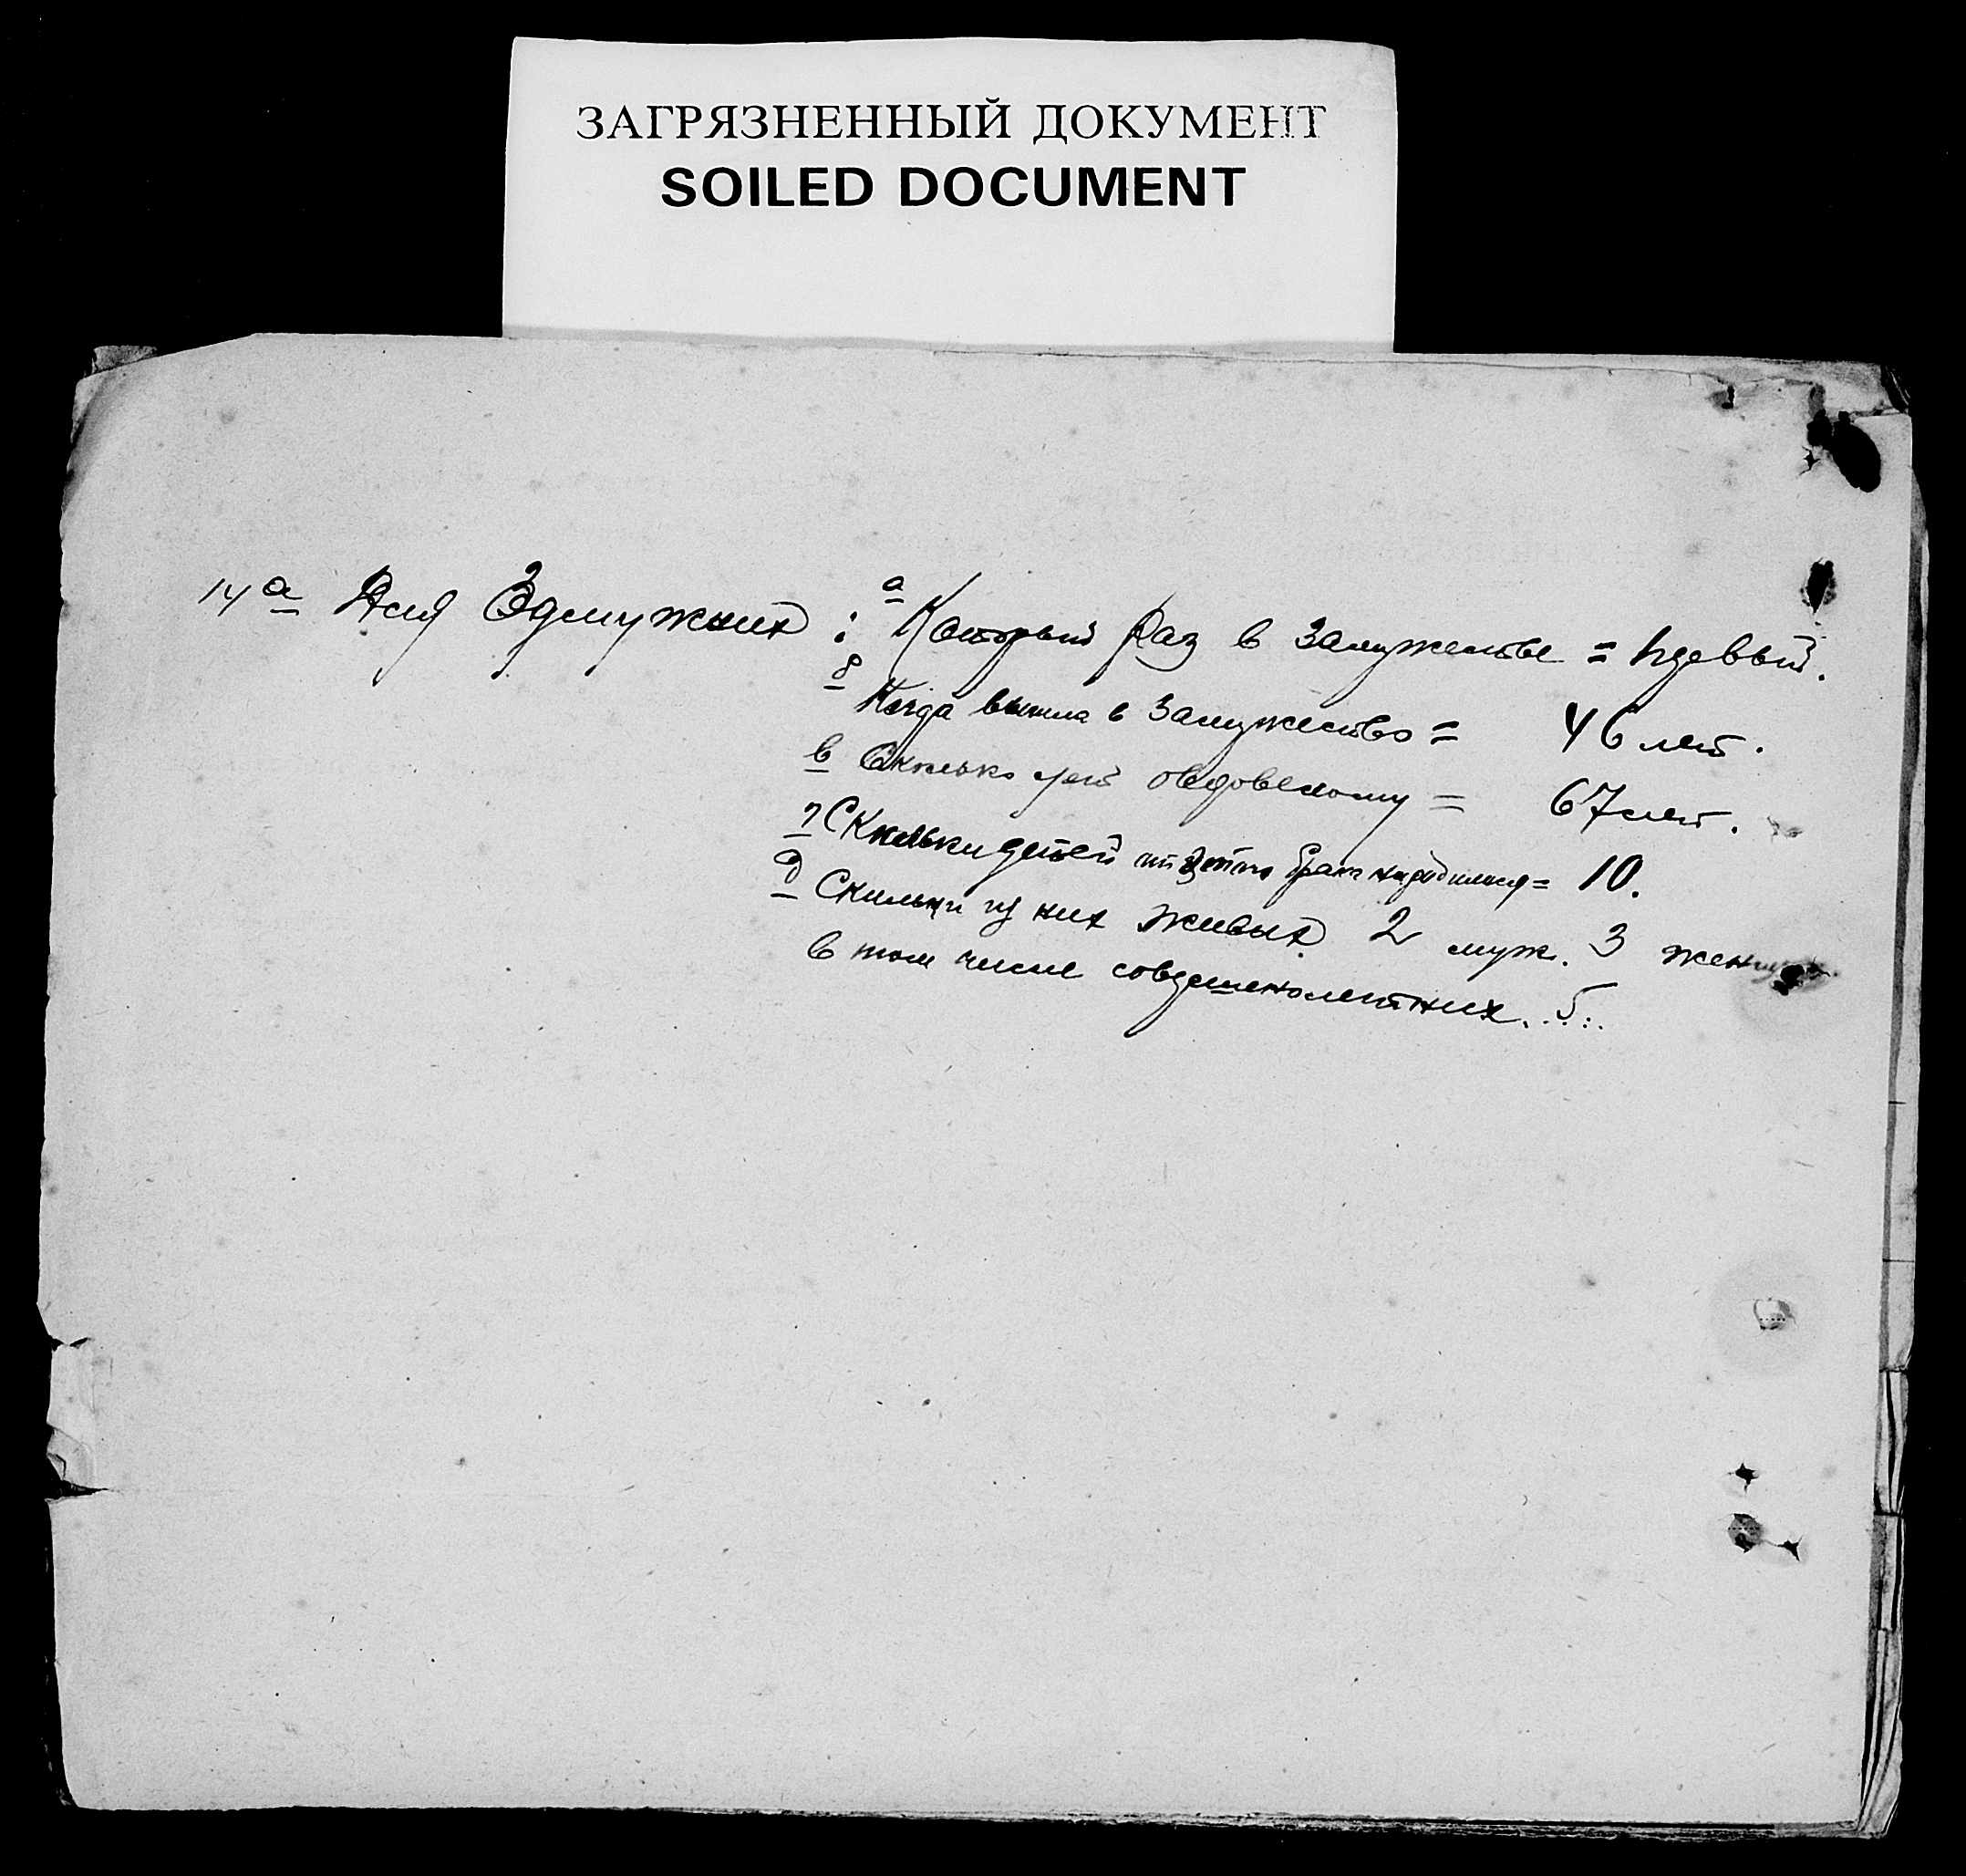 ЗАГРЯЗНЕННЫЙ ДОКУМЕНТ
SOILED DOCUMENT
14 а Для Замужних : а Который раз в замужестве = первый.
б Когда вышла в замужество = 46 лет.
в Сколько лет овдовелому = 67 лет.
г Сколько детей от этого брака народилися = 10.
д Сколько из них живых 2 муж. 3 жен
в том числе совершенолетних. 5.